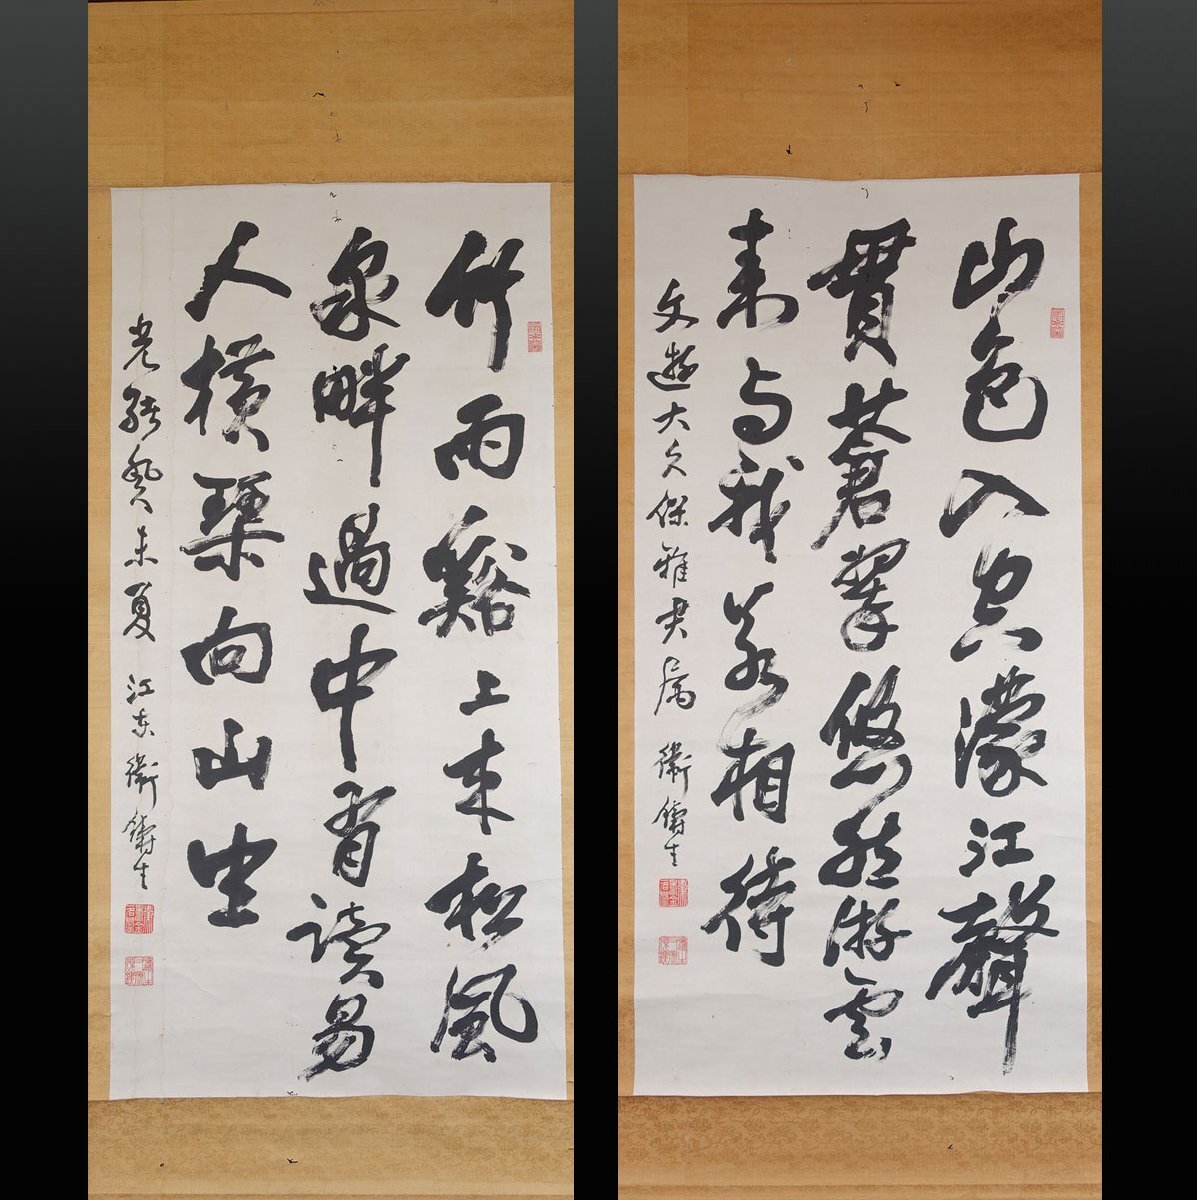 山色入空濛江聲
貫蒼翠悠然游雲
来与我若相待
文遊大久保雅契属 衛鑄生
竹雨谿上来松風
泉畔過中有讀易
人横琹向山坐
光緒癸未夏 江左衛鑄生